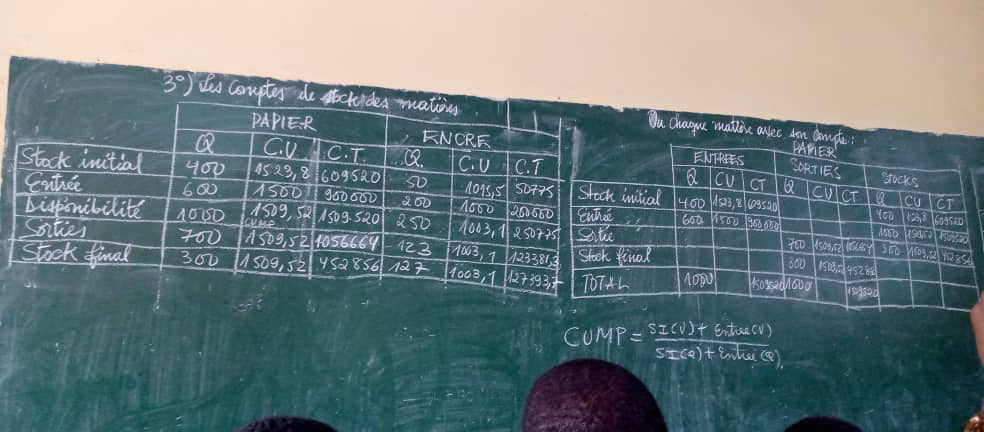 3°) Les comptes de stock des matières
PAPIER ENCRE
Q C.U C.T. Q C.U C.T
Stock initial 400 1523,8 609520 50 1015,5 50775
Entrée 600 1500 900000 200 1000 200000
Disponibilité 1000 1509,52 1509520 250 1003,1 250775
CUMP
Sorties 700 1509,52 1056664 123 1003,1 123381,3
Stock final 300 1509,52 452856 127 1003,1 127393,7
Ou chaque matière avec son compte :
PAPIER
ENTREES SORTIES STOCKS
Q CU CT Q CU CT Q CU CT
Stock initial 400 1523,8 609520 400 1523,8 609520
Entrée 600 1500 900000 1000 1509,52 1509520
Sortie 700 1509,52 1056664 300 1509,52 452856
Stock final 300 1509,52
TOTAL 1000 1509520 1000 1509520
CUMP = SI(V) + Entrée (V)
SI(Q) + Entrée (Q)